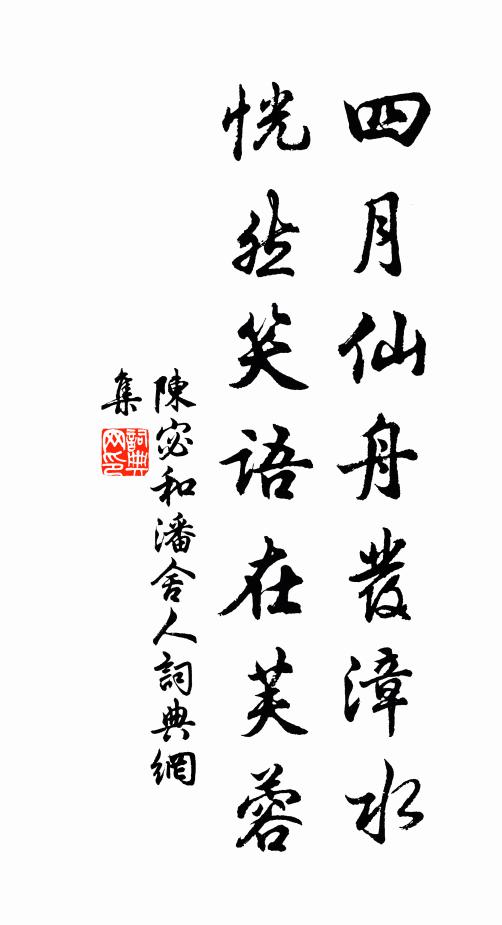 四月仙舟發漳水
恍然笑語在芙蓉
陳宓和潘舍人詞典網
集
詞典網印